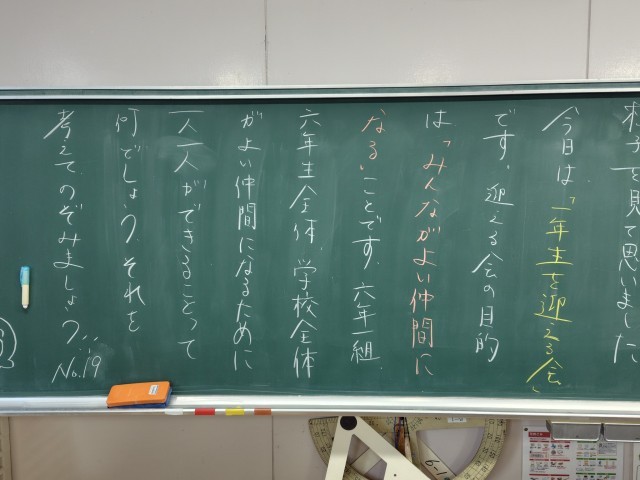 子を見て思いました
今日は「一年生を迎える会」
です。迎える会の目的
は「みんながよい仲間に
なる」ことです。六年一組、
六年生全体、学校全体
がよい仲間になるために
一人一人ができることって
何でしょう。それを
考えてのぞみましょう。
No.19
6-1